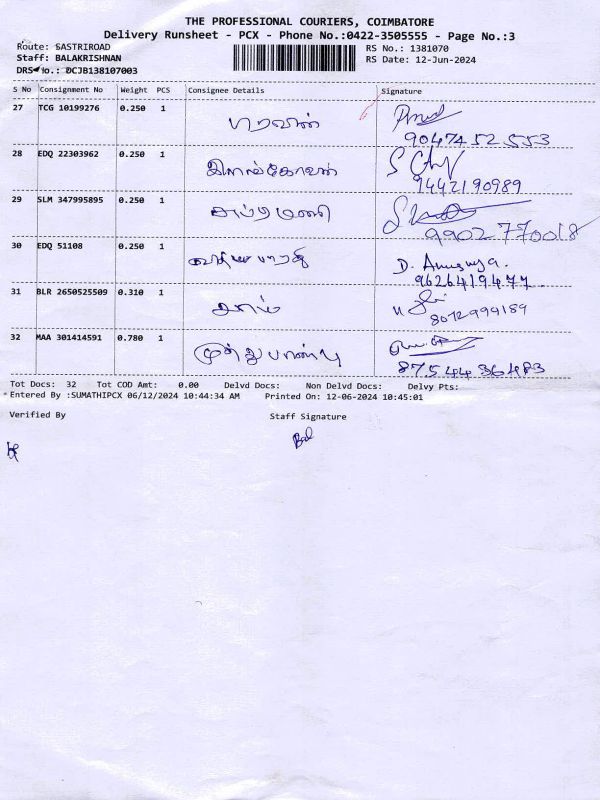 THE PROFESSIONAL COURIERS, COIMBATORE
Delivery Runsheet - PCX - Phone No.:0422-3505555 - Page No.:3
Route: SASTRIROAD
RS No.: 1381070
Staff: BALAKRISHNAN
RS Date: 12-Jun-2024
DRS No.: DCJB138107003
S No Consignment No Weight PCS Consignee Details Signature
27 TCG 10199276 0.250 1
9047452553
28 EDQ 22303962 0.250 1 இளங்கோவன்
9442190989
29 SLM 347995895 0.250 1 சுப்ரமணி
9902770018
30 EDQ 51108 0.250 1 D. Anusuya.
9626419477
31 BLR 2650525509 0.310 1
8072999189
32 MAA 301414591 0.780 1 முத்துபாண்டி
8754436483
Tot Docs: 32 Tot COD Amt: 0.00 Delvd Docs: Non Delvd Docs: Delvy Pts:
Entered By :SUMATHIPCX 06/12/2024 10:44:34 AM Printed On: 12-06-2024 10:45:01
Verified By Staff Signature
Bal